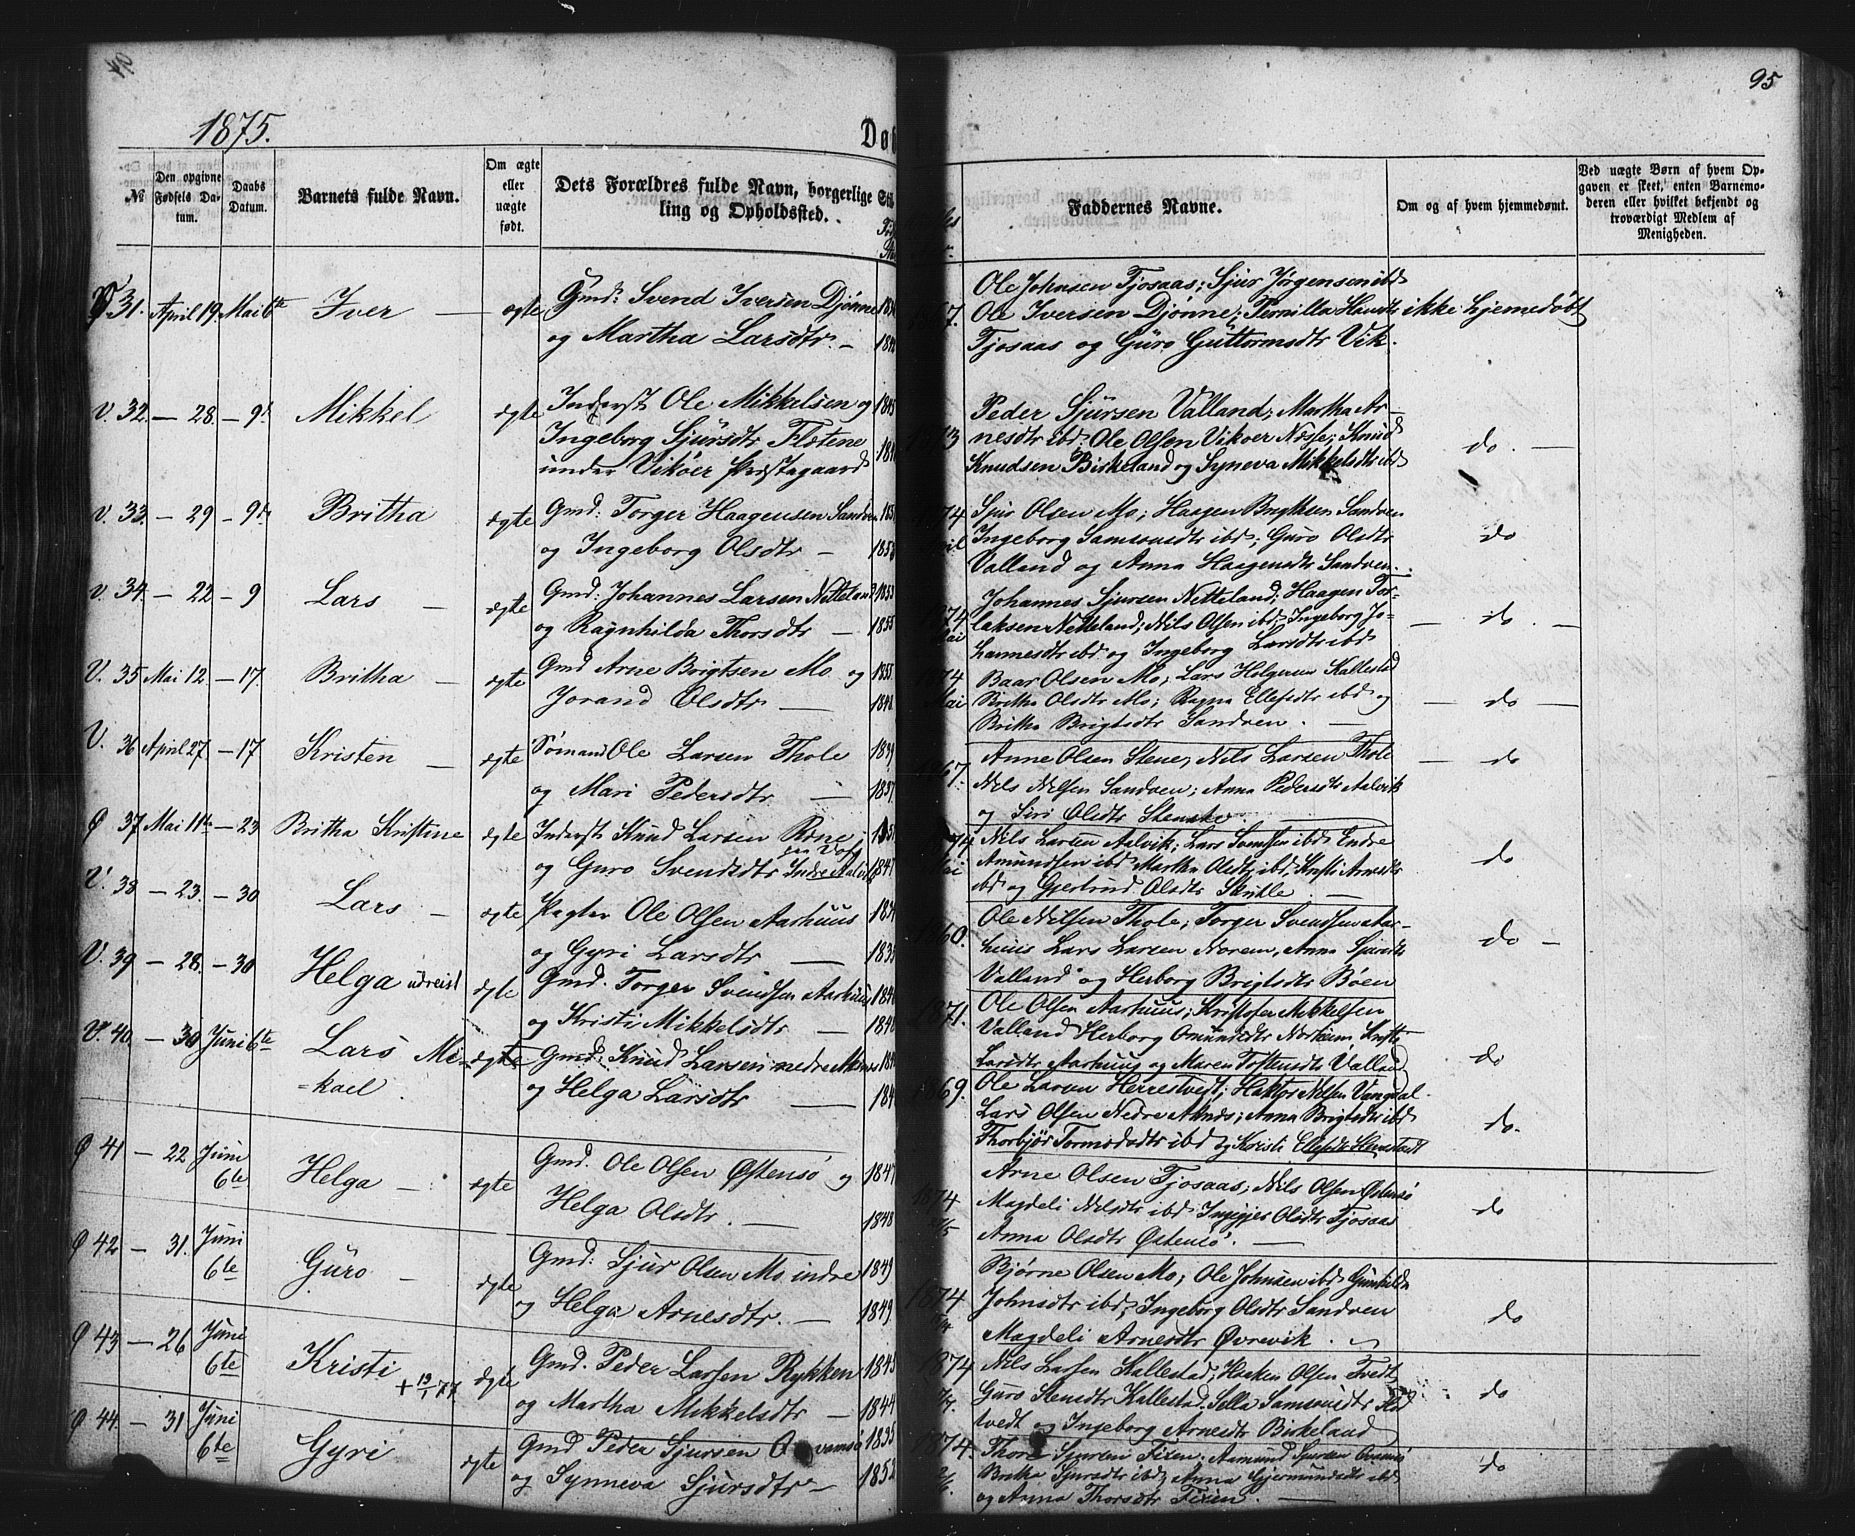 95
1875.
Dø
№
Den opgivne Fødsels Datum.
Daabs Datum.
Barnets fulde Navn.
Om ægte eller uægte født.
Dets Forældres fulde Navn, borgerlige Stilling og Opholdssted.
Faddernes Navne.
Om og af hvem hjemmedøbt.
Ved uægte Børn af hvem Opgaven er skeet, enten Barnemoderen eller hvilket bekjendt og troværdigt Medlem af Menigheden.
Ole Johnsen Tjosaas; Sjur Jørgensen ibd
31. April 19. Mai 6te Iver — ægte Gmd: Svend Iversen Djønne
Ole Iversen Djønne; Pernilla Hansdtr ikke hjemmedøbt
og Martha Larsdtr. —
Tjosaas og Guro Guttormsdtr Vik.
V. 32. — 28. — 9d. Mikkel ægte Inderst Ole Mikkelsen og 1845
Peder Sjursen Valland; Martha Ar-
Ingeborg Sjursdtr Flotene
nesdtr ibd: Ole Olsen Vikøer Næse; Knud do. —
under Vikøer Præstegaard
Knudsen Birkeland og Synneva Mikkelsdtr ibd
V. 33. — 29 — 9d Britha ægte Gmd: Torger Haagensen Sandven
1874 Sjur Olsen Mo; Haagen Brigtsen Sandven
og Ingeborg Olsdtr —
Ingeborg Samsonsdtr ibd; Guro Olsdtr do
Valland og Anna Haagensdtr Sandven.
V. 34. — 22 — 9 Lars — ægte Gmd: Johannes Larsen Netteland 1853
Johannes Sjursen Netteland; Haagen Tor-
og Ragnhilda Thorsdtr — 1855
1874 laksen Netteland; Nils Olsen ibd; Ingeborg Jo- — do. —
hannesdtr ibd og Ingeborg Larsdtr ibd
V. 35 Mai 12. — 17. Britha — ægte Gmd Arne Brigtsen Mo og 1855.
1874 Baar Olsen Mo; Lars Helgesen Kallestad
Jorand Olsdtr — 1848.
Mai Britha Olsdtr Mo; Ragna Ellefsdtr ibd og — do —
Britha Brigtsdtr Sandven. —
V. 36 April 27 — 17 Kristen — ægte Sømand Ole Larsen Thole 1839
Anne Olsen Stene, Nils Larsen Thole — do
og Mari Pedersdtr — 1837.
1867. Nils Nilsen Sandven; Anna Pedersdtr Aalvik
og Siri Olsdtr Stene
Ø 37 Mai 11te — 23 Britha Kristine ægte Inderst Knud Larsen Rone
1874 Nils Larsen Aalvik; Lars Svendsen ibd Endre
og Guro Svendsdtr Indre Aalvik 1847
Mai Amundsen ibd Martha Olsdtr ibd, Kristi Arnesdtr do
ibd og Gjertrud Olsdtr Skutle —
V. 38 — 23. — 30 Lars — ægte Pagter Ole Olsen Aarhuus
1860. Ole Nilsen Thole; Torger Svendsen Aar-
og Gyri Larsdtr —
huus Lars Larsen Norem, Anna Sjursdtr do —
Valland og Herborg Brigtsdtr Bøen
V. 39 — 28. — 30 Helga udreist ægte Gmd. Torger Svendsen Aarhuus
1871. Ole Olsen Aarhuus; Kristofer Mikkelsen
og Kristi Mikkelsdtr — 1848
Valland Herborg Omundsdtr Norheim, Kristi do
Larsdtr Aarhuus og Maren Tostensdtr Valland
V. 40. — 30 Juni 6te Lars Mi- ægte Gmd: Knud Larsen nedre Aksnes
1869. Ole Larsen Herrestvedt; Haktor Nilsen Vangdal
kael. og Helga Larsdtr —
Lars Olsen Nedre Aksnes; Anna Brigtsdtr ibd do.
Thorbjør Tormodsdtr ibd og Kristi Ellefsdtr
Ø 41 — 22. Juni 6te Helga — ægte Gmd. Ole Olsen Østensø og 1847
Arne Olsen Tjosaas; Nils Olsen Østensø
Helga Olsdtr. — 1848
1874 Magdeli Nilsdtr ibd Ingigjer Olsdtr Tjosaas do
Anna Olsdtr Østensø. —
Ø 42 — 31. Juni 6te Guro — ægte Gmd: Sjur Olsen Mo indre 1849
Bjørne Olsen Mo; Ole Johnsen ibd Gunhilda
og Helga Arnesdtr. — 1849.
1874 Johnsdtr ibd; Ingeborg Olsdtr Sandven do
Magdeli Arnesdtr Øvrevik.
Ø 43 — 26 Juni 6te Kristi + 19/1 77 ægte Gmd. Peder Larsen Rykken 1845
1874 Nils Larsen Kallestad; Haaken Olsen Tvedt
og Martha Mikkelsdtr — 1844
Guro Stensdtr Kallestad, Sella Samsonsdtr Flot do
vedt og Ingeborg Arnesdtr Birkeland
Ø 44. — 31 Juni 6te Gyri ægte Gmd Peder Sjursen 1835
1874. Thore Sjursen Fixen; Aamund Sjursen
og Synneva Sjursdtr — 1852
Britha Sjursdtr ibd; Anna Gjermundsdtr ibd do
og Anna Thorsdtr Fixen. —